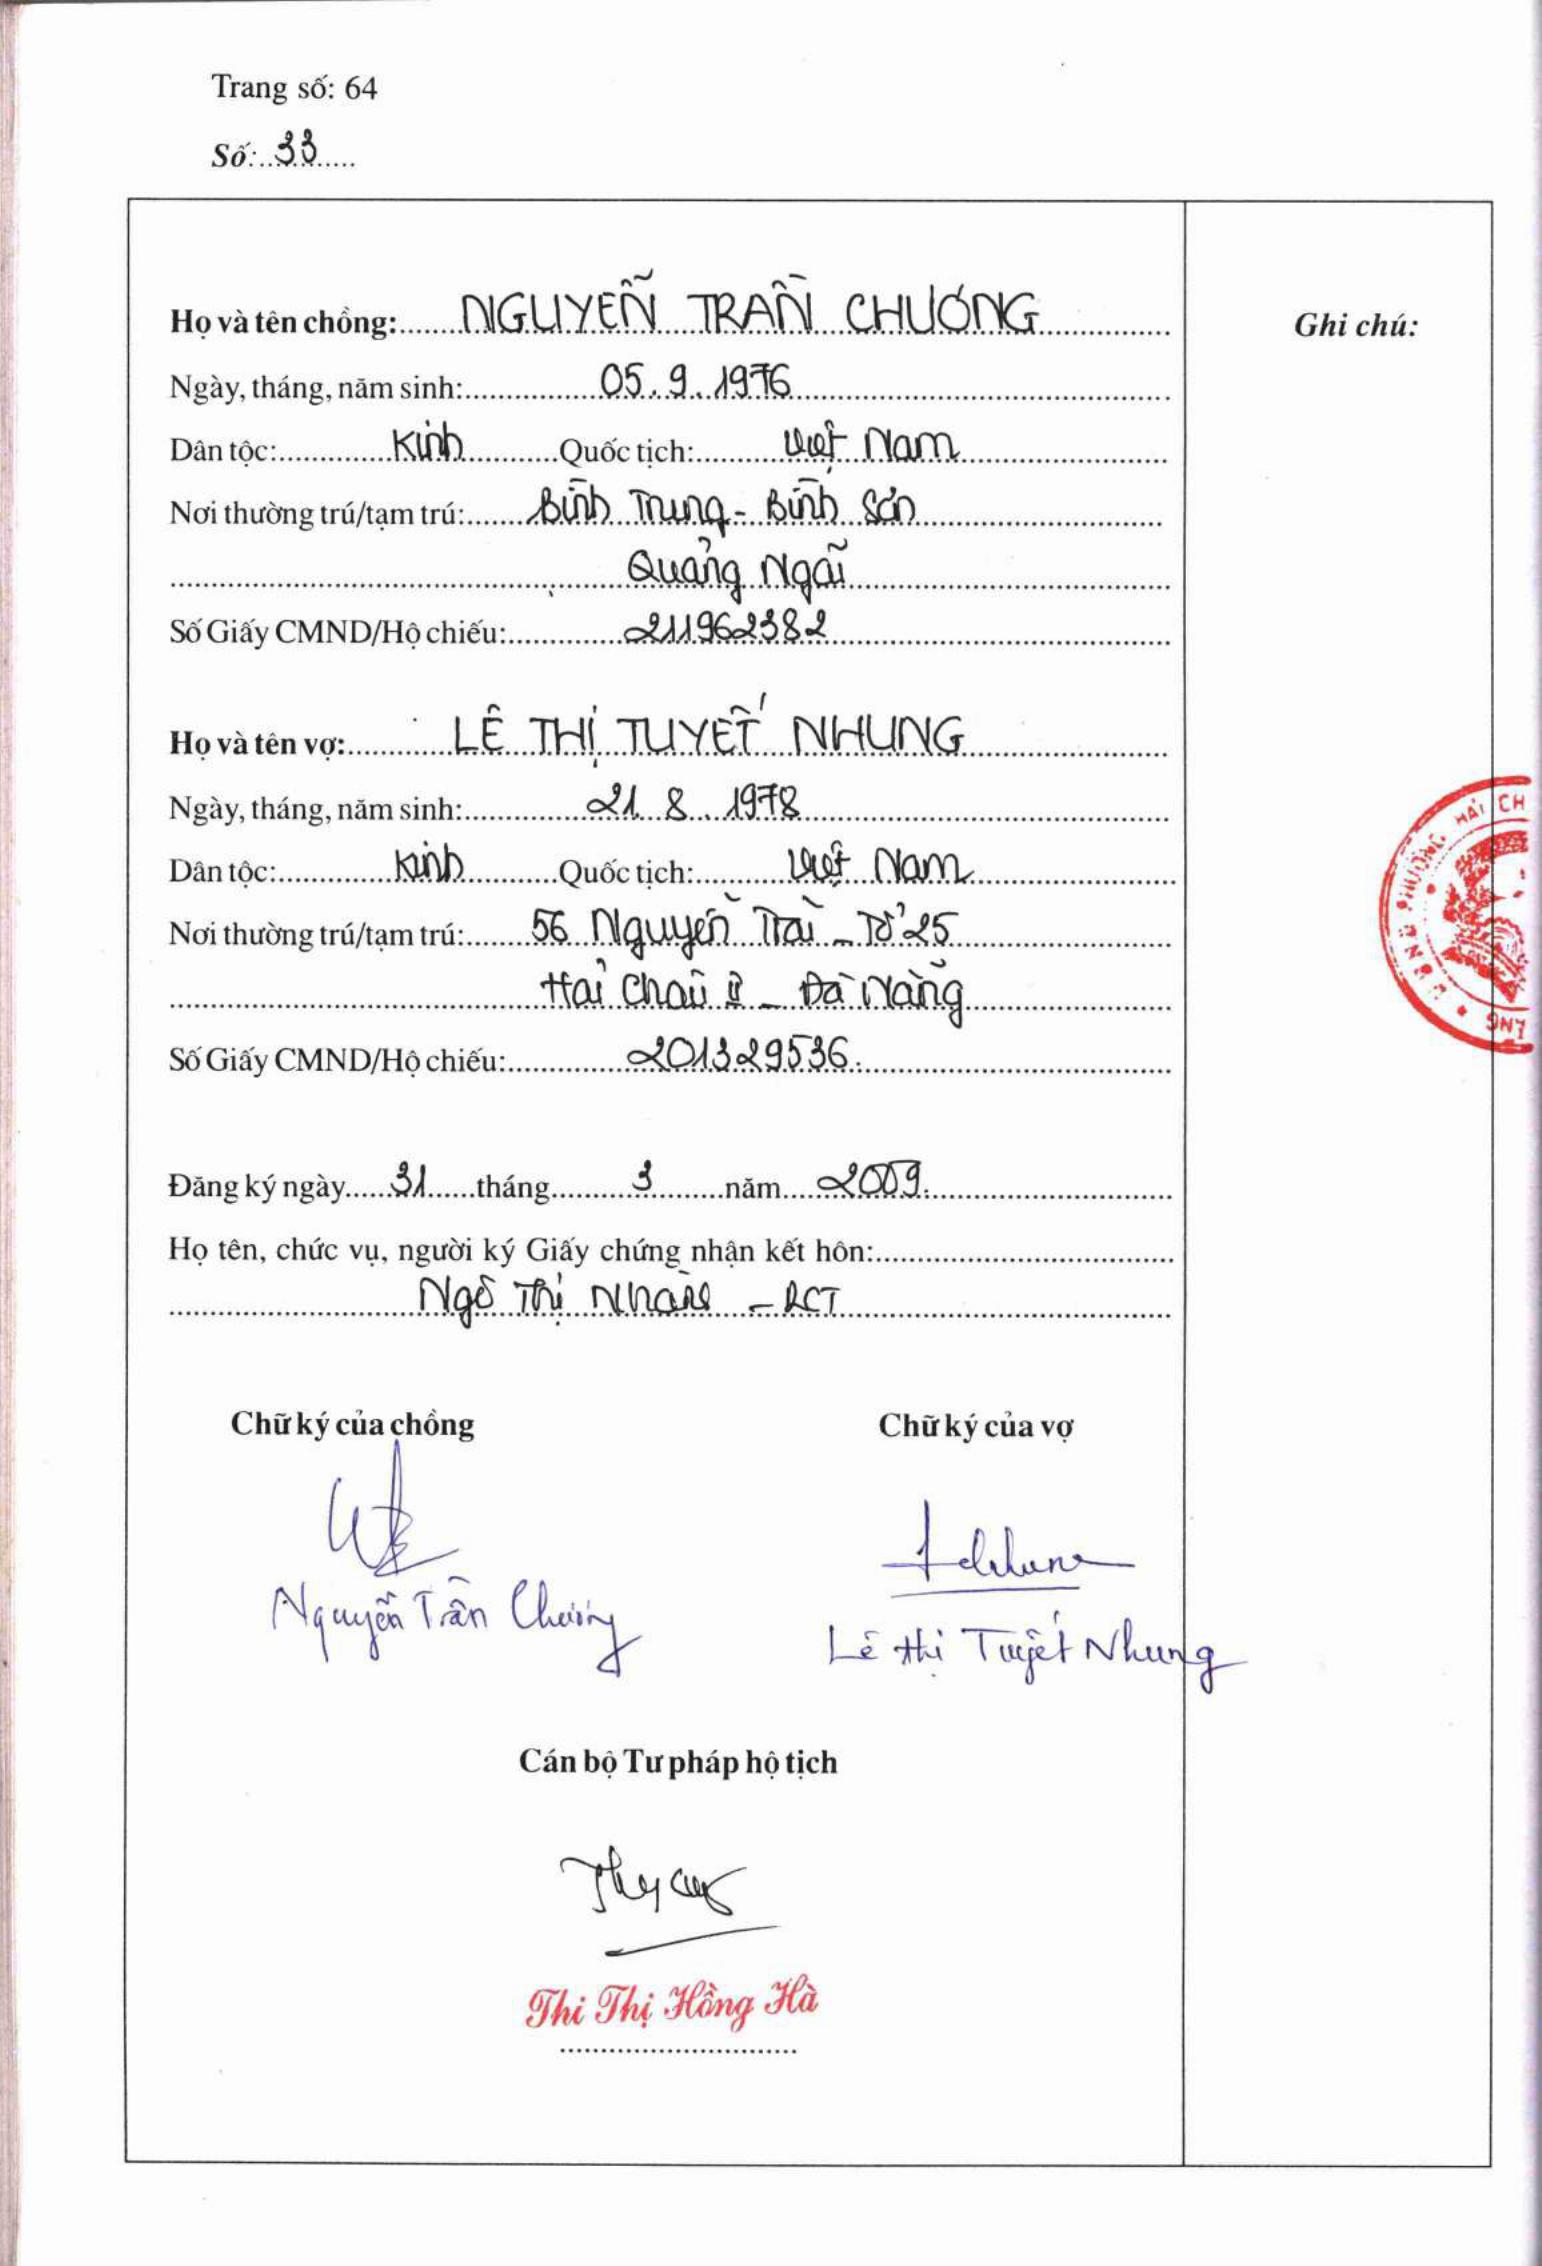 Trang số: 64
Số: 33
Họ và tên chồng: NGUYỄN TRẦN CHƯƠNG
Ghi chú:
Ngày, tháng, năm sinh: 05.9.1976
Dân tộc: Kinh Quốc tịch: Việt Nam
Nơi thường trú/tạm trú: Bình Trung - Bình Sơn
Quảng Ngãi
Số Giấy CMND/Hộ chiếu: 211962382
Họ và tên vợ: LÊ THỊ TUYẾT NHUNG
Ngày, tháng, năm sinh: 21.8.1978
Dân tộc: Kinh Quốc tịch: Việt Nam
Nơi thường trú/tạm trú: 56 Nguyễn Trãi - Tổ 25
Hải Châu II - Đà Nẵng
Số Giấy CMND/Hộ chiếu: 201329536.
Đăng ký ngày 31 tháng 3 năm 2009.
Họ tên, chức vụ, người ký Giấy chứng nhận kết hôn:
Ngô Thị Nhàn - PCT
Chữ ký của chồng Chữ ký của vợ
Nguyễn Trần Chương
Lê Thị Tuyết Nhung
Cán bộ Tư pháp hộ tịch
Thi Thị Hồng Hà